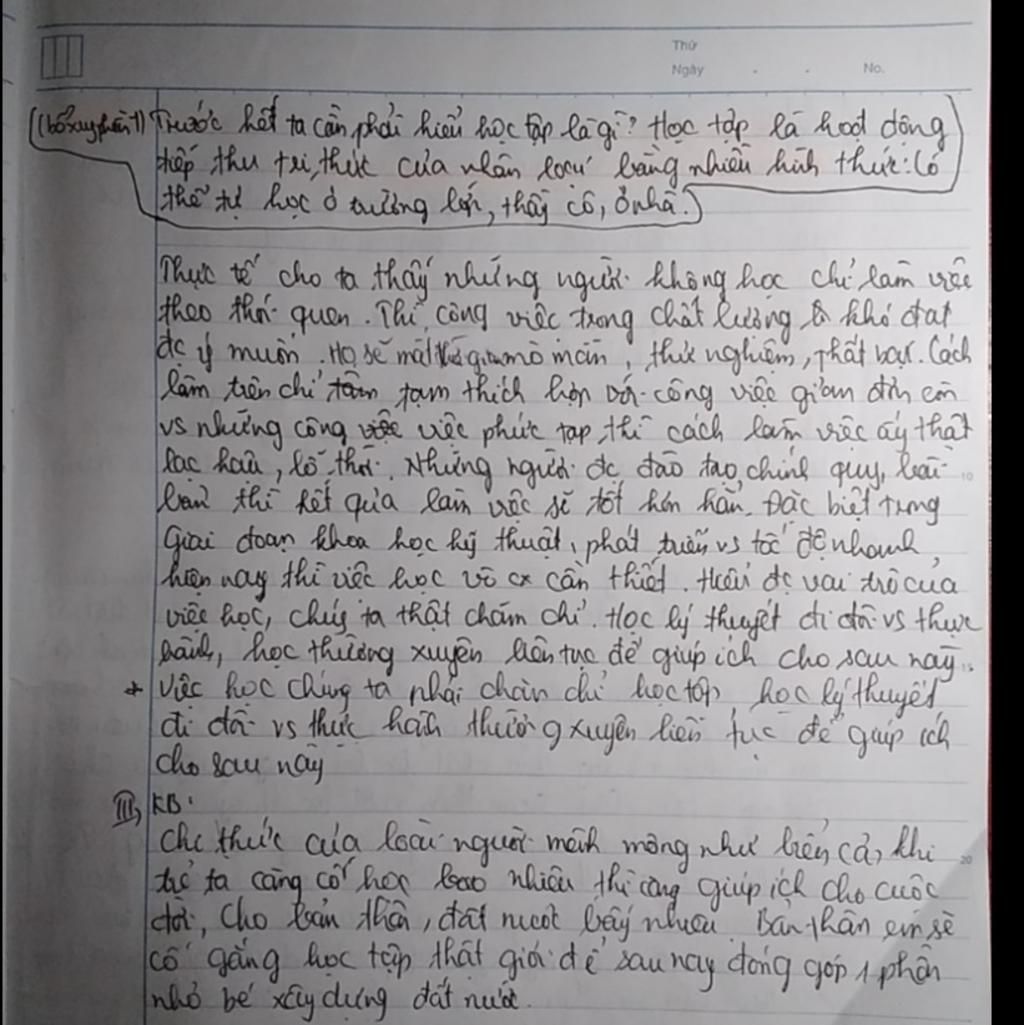 Thứ
Ngày . . No.
(bổ xung phần 1) Trước hết ta cần phải hiểu học tập là gì? Học tập là hoạt động
tiếp thu tri thức của nhân loại bằng nhiều hình thức: Có
thể tự học ở trường lớp, thầy cô, ở nhà.)
Thực tế cho ta thấy những người không học chỉ làm việc
theo thói quen. Thì công việc trong chất lượng khó đạt
đc ý muốn. Họ sẽ mất thời gian mò mẫn, thử nghiệm, thất bại. Cách
làm trên chỉ tạm thích hợp với công việc giản đơn còn
vs những công việc phức tạp thì cách làm việc ấy thật
lạc hậu, lỗ thời. Những người đc đào tạo chính quy, bài
bản thì kết quả làm việc sẽ tốt hơn hẳn. Đặc biệt trong
Giai đoạn khoa học kỹ thuật phát triển vs tốc độ nhanh
hiện nay thì việc học vô cx cần thiết. Hiểu đc vai trò của
việc học, chúng ta thật chăm chỉ. Học lý thuyết đi đôi vs thực
hành, học thường xuyên liên tục để giúp ích cho sau này.
+ Việc học chúng ta phải chăn chỉ học tập, học lý thuyết
đi đôi vs thực hành thường xuyên liên tục để giúp ích
cho sau này
III, KB:
Chi thức của loài người mênh mông như biển cả, khi
trẻ ta càng cố học bao nhiêu thì càng giúp ích cho cuộc
đời, cho bản thân, đất nước bấy nhiêu. Bản thân em sẽ
cố gắng học tập thật giỏi để sau này đóng góp 1 phần
nhỏ bé xây dựng đất nước.